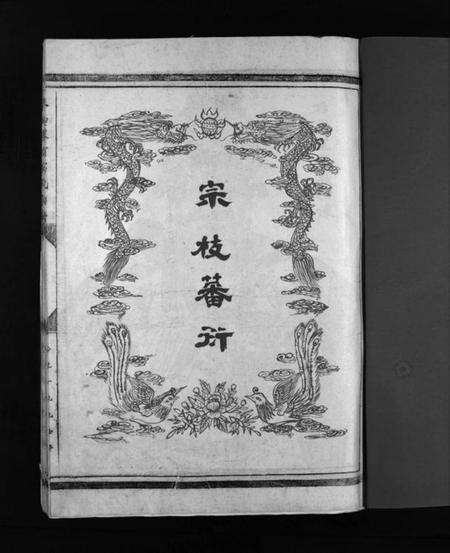 宗枝蕃衍